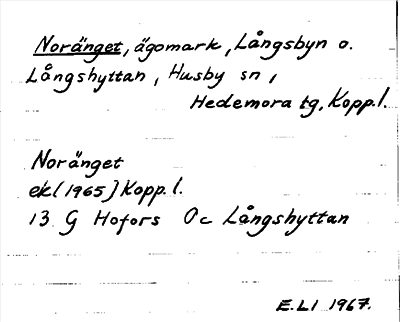 Noränget, ägomark, Långsbyn o.
Långshyttan, Husby sn,
Hedemora tg, Kopp.l.
Noränget
ek(1965) Kopp.l.
13 G Hofors Oc Långshyttan
E.LI 1967.